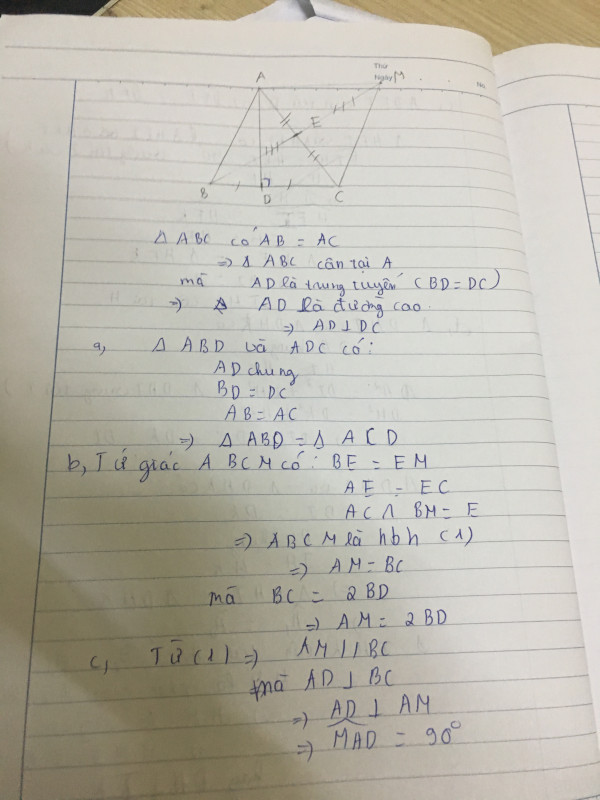 Thứ
Ngày
No.
A
M
E
B
D
C
Δ ABC có AB = AC
=> Δ ABC cân tại A
mà AD là trung tuyến (BD = DC)
=> AD là đường cao
=> AD ⊥ DC
a, Δ ABD và ADC có:
AD chung
BD = DC
AB = AC
=> Δ ABD = Δ ACD
b, Tứ giác ABCM có: BE = EM
AE = EC
AC ∩ BM = E
=> ABCM là hbh (1)
=> AM = BC
mà BC = 2BD
=> AM = 2BD
c, Từ (1) => AM // BC
mà AD ⊥ BC
=> AD ⊥ AM
=> \widehat{MAD} = 90°